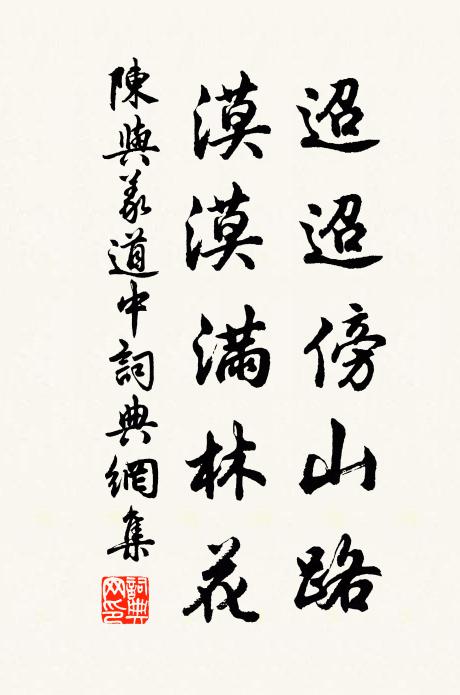 迢迢傍山路
漠漠滿林花
陳與義道中詞典網集
詞典
网印